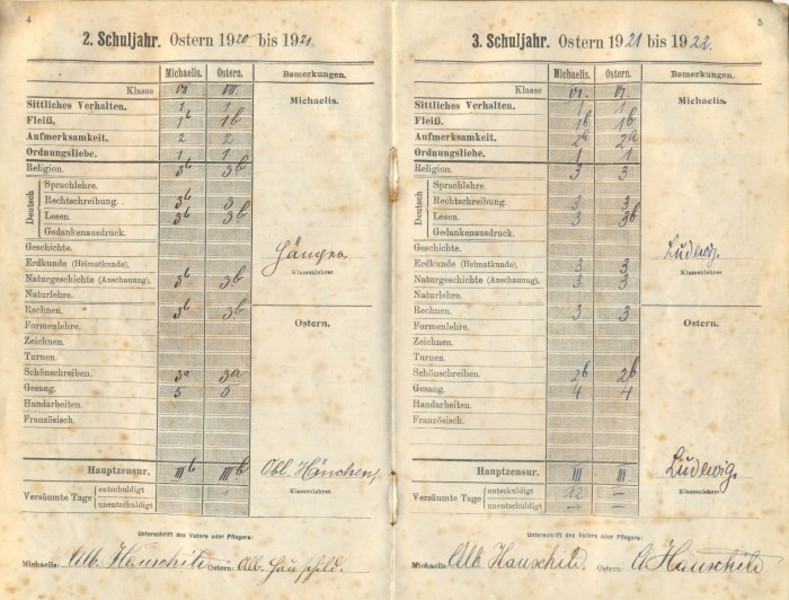 4
2. Schuljahr. Ostern 1920 bis 1921.
Michaelis. Ostern. Bemerkungen.
Klasse VII VII.
Michaelis.
Sittliches Verhalten. 1 1
Fleiß. 1b 1b
Aufmerksamkeit. 2 2
Ordnungsliebe. 1 1
Religion. 3b 3b
Deutsch
Sprachlehre.
Rechtschreibung. 3b 3
Lesen. 3b 3b
Gedankenausdruck.
Geschichte.
Erdkunde (Heimatkunde).
Klassenlehrer.
Naturgeschichte (Anschauung). 3b 3b
Naturlehre.
Rechnen. 3b 3b
Ostern.
Formenlehre.
Zeichnen.
Turnen.
Schönschreiben. 3a 3a
Gesang. 5 5
Handarbeiten.
Französisch.
Hauptzensur. IIIb IIIb
Klassenlehrer.
Versäumte Tage
entschuldigt 1
unentschuldigt
Unterschrift des Vaters oder Pflegers:
Michaelis: Alb. Hauschild Ostern: Alb. Hauschild.
5
3. Schuljahr. Ostern 1921 bis 1922.
Michaelis. Ostern. Bemerkungen.
Klasse VI. VI.
Michaelis.
Sittliches Verhalten. 1 1
Fleiß. 1b 1b
Aufmerksamkeit. 2a 2a
Ordnungsliebe. 1 1
Religion. 3 3
Deutsch
Sprachlehre.
Rechtschreibung. 3 3
Lesen. 3 3b
Gedankenausdruck.
Geschichte.
Ludwig.
Erdkunde (Heimatkunde). 3 3
Klassenlehrer.
Naturgeschichte (Anschauung). 3 3
Naturlehre.
Rechnen. 3 3
Ostern.
Formenlehre.
Zeichnen.
Turnen.
Schönschreiben. 2b 2b
Gesang. 4 4
Handarbeiten.
Französisch.
Hauptzensur. III III.
Ludwig.
Klassenlehrer.
Versäumte Tage
entschuldigt 12 —
unentschuldigt — —
Unterschrift des Vaters oder Pflegers:
Michaelis: Alb. Hauschild. Ostern: A. Hauschild